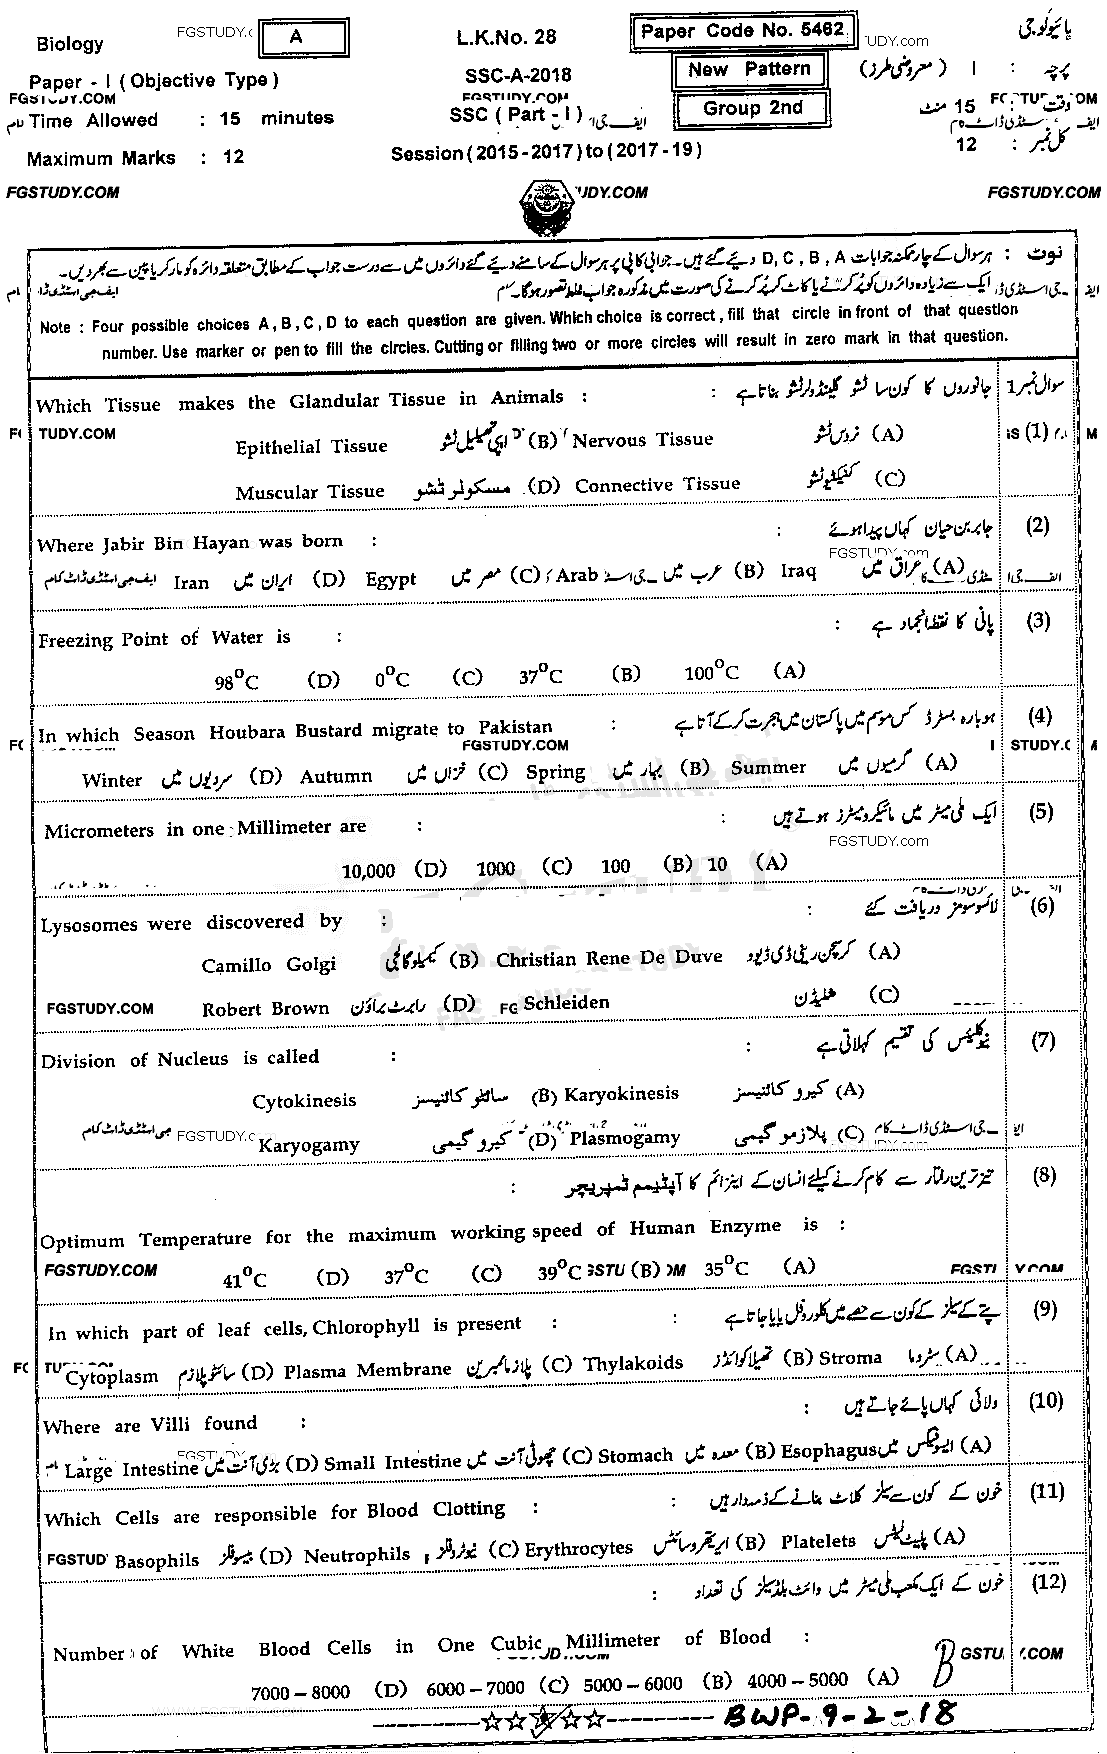 Biology FGSTUDY.C A L.K.No. 28 Paper Code No. 5462 UDY.com بائیولوجی
Paper - I ( Objective Type ) SSC-A-2018 New Pattern پرچہ : I ( معروضی طرز )
FGSTUDY.COM FGSTUDY.COM
Time Allowed : 15 minutes SSC ( Part - I ) Group 2nd وقت : 15 منٹ
Maximum Marks : 12 Session ( 2015 - 2017 ) to ( 2017 - 19 ) کل نمبر : 12
FGSTUDY.COM UDY.COM FGSTUDY.COM
نوٹ : ہر سوال کے چار ممکنہ جوابات D, C, B, A دیے گئے ہیں۔ جوابی کاپی پر ہر سوال کے سامنے دیے گئے دائروں میں سے درست جواب کے مطابق متعلقہ دائرہ کو مارکر یا پین سے بھر دیں۔
ایک سے زیادہ دائروں کو پُر کرنے یا کاٹ کر پُر کرنے کی صورت میں مذکورہ جواب غلط تصور ہوگا۔
Note : Four possible choices A, B, C, D to each question are given. Which choice is correct, fill that circle in front of that question
number. Use marker or pen to fill the circles. Cutting or filling two or more circles will result in zero mark in that question.
سوال نمبر 1 جانوروں کا کون سا ٹشو گلینڈولر ٹشو بناتا ہے :
Which Tissue makes the Glandular Tissue in Animals :
TUDY.COM
(1) (A) نروس ٹشو Nervous Tissue (B) اپی تھیلیل ٹشو Epithelial Tissue
(C) کنیکٹیو ٹشو Connective Tissue (D) مسکولر ٹشو Muscular Tissue
(2) جابر بن حیان کہاں پیدا ہوئے :
Where Jabir Bin Hayan was born :
FGSTUDY.com
(A) عراق میں Iraq (B) عرب میں Arab (C) مصر میں Egypt (D) ایران میں Iran
(3) پانی کا نقطہ انجماد ہے :
Freezing Point of Water is :
98°C (D) 0°C (C) 37°C (B) 100°C (A)
(4) ہوبارہ بسٹرڈ کس موسم میں پاکستان میں ہجرت کر کے آتا ہے :
In which Season Houbara Bustard migrate to Pakistan
FGSTUDY.COM STUDY.C
(A) گرمیوں میں Summer (B) بہار میں Spring (C) خزاں میں Autumn (D) سردیوں میں Winter
(5) ایک ملی میٹر میں مائیکرو میٹرز ہوتے ہیں :
Micrometers in one Millimeter are :
FGSTUDY.com
10,000 (D) 1000 (C) 100 (B) 10 (A)
(6) لائسوسومز دریافت کئے :
Lysosomes were discovered by :
(A) کرسچن رینی ڈی ڈیوو Christian Rene De Duve (B) کیمیلو گالجی Camillo Golgi
FGSTUDY.COM (C) شلیڈن Schleiden (D) رابرٹ براؤن Robert Brown
(7) نیوکلیئس کی تقسیم کہلاتی ہے :
Division of Nucleus is called :
(A) کیرو کائنیسز Karyokinesis (B) سائٹو کائنیسز Cytokinesis
FGSTUDY.C (C) پلازمو گیمی Plasmogamy (D) کیرو گیمی Karyogamy
(8) تیز ترین رفتار سے کام کرنے کیلئے انسان کے اینزائم کا آپٹیمم ٹمپریچر :
Optimum Temperature for the maximum working speed of Human Enzyme is :
FGSTUDY.COM 41°C (D) 37°C (C) 39°C (B) 35°C (A)
(9) پتے کے سیلز کے کون سے حصے میں کلوروفل پایا جاتا ہے :
In which part of leaf cells, Chlorophyll is present :
(A) سٹروما Stroma (B) تھیلاکوائڈز Thylakoids (C) پلازما ممبرین Plasma Membrane (D) سائٹوپلازم Cytoplasm
(10) ولائی کہاں پائے جاتے ہیں :
Where are Villi found :
FGSTUDY
(A) ایسوفیگس میں Esophagus (B) معدہ میں Stomach (C) چھوٹی آنت میں Small Intestine (D) بڑی آنت میں Large Intestine
(11) خون کے کون سے سیلز کلاٹ بنانے کے ذمہ دار ہیں :
Which Cells are responsible for Blood Clotting :
FGSTUD (A) پلیٹلیٹس Platelets (B) ایرتھروسائٹس Erythrocytes (C) نیوٹروفلز Neutrophils (D) بیسوفلز Basophils
(12) خون کے ایک مکعب ملی میٹر میں وائٹ بلڈ سیلز کی تعداد :
Number of White Blood Cells in One Cubic Millimeter of Blood :
7000 – 8000 (D) 6000 – 7000 (C) 5000 – 6000 (B) 4000 – 5000 (A) B
BWP-9-2-18